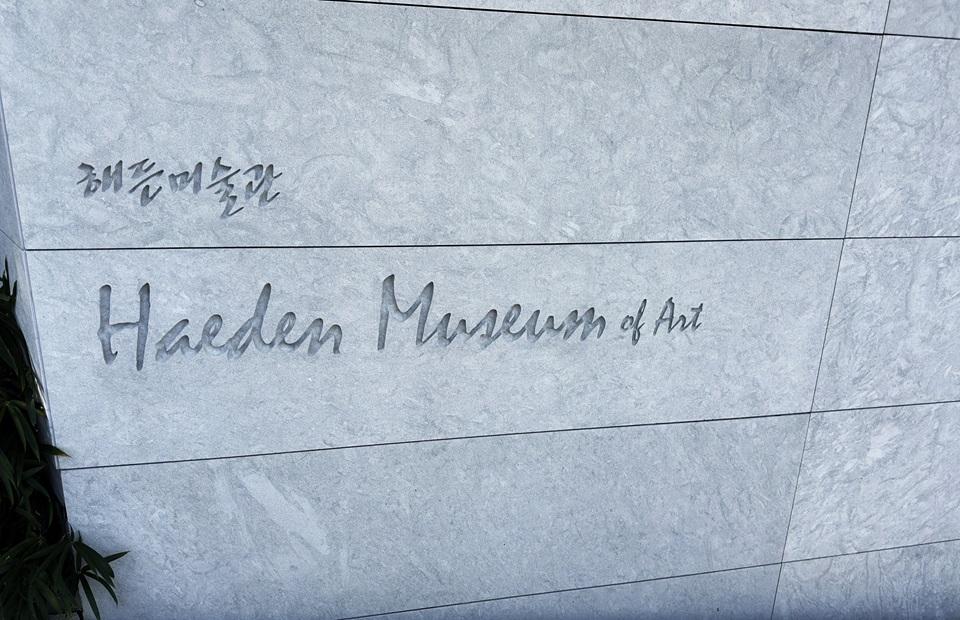 해든미술관
Haeden Museum of Art